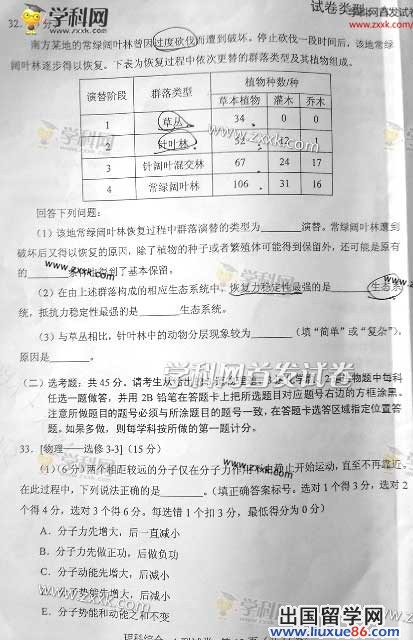 学科网
www.zxxk.com
试卷类型
www.zxxk.com
32. 分
南方某地的常绿阔叶林曾因过度砍伐而遭到破坏。停止砍伐一段时间后，该地常绿
阔叶林逐步得以恢复。下表为恢复过程中依次更替的群落类型及其植物组成。
演替阶段 群落类型 植物种数/种
草本植物 灌木 乔木
1 草丛 34 0 0
2 针叶林 52 12 1
3 针阔叶混交林 67 24 17
4 常绿阔叶林 106 31 16
学科网
www.zxxk.com
回答下列问题：
（1）该地常绿阔叶林恢复过程中群落演替的类型为______演替。常绿阔叶林遭到
破坏后又得以恢复的原因，除了植物的种子或者繁殖体可能得到保留外，还可能是原有
的______条件也得到了基本保留。
（2）在由上述群落构成的相应生态系统中，恢复力稳定性最强的是______生态系
统，抵抗力稳定性最强的是______生态系统。
（3）与草丛相比，针叶林中的动物分层现象较为______（填“简单”或“复杂”）。
原因是______。
学科网首发试卷
www.zxxk.com
（二）选考题：共45分。请考生从
任选一题做答，并用 2B 铅笔在答题卡上把所选题目对应题号右边的方框涂黑。
注意所做题目的题号必须与所涂题目的题号一致，在答题卡选答区域指定位置答
题。如果多做，则每学科按所做的第一题计分。
33. [物理——选修 3-3]（15 分）
（1）（6分）两个相距较远的分子仅在分子力作用下由静止开始运动，直至不再靠近。
在此过程中，下列说法正确的是______。（填正确答案标号。选对 1 个得 3 分，选对 2
个得 4 分，选对 3 个得 6 分。每选错 1 个扣 3 分，最低得分为 0 分）
A．分子力先增大，后一直减小
B．分子力先做正功，后做负功
C．分子动能先增大，后减小
D．分子势能先增大，后减小
E．分子势能和动能之和不变
出国留学网
www.liuxue86.com